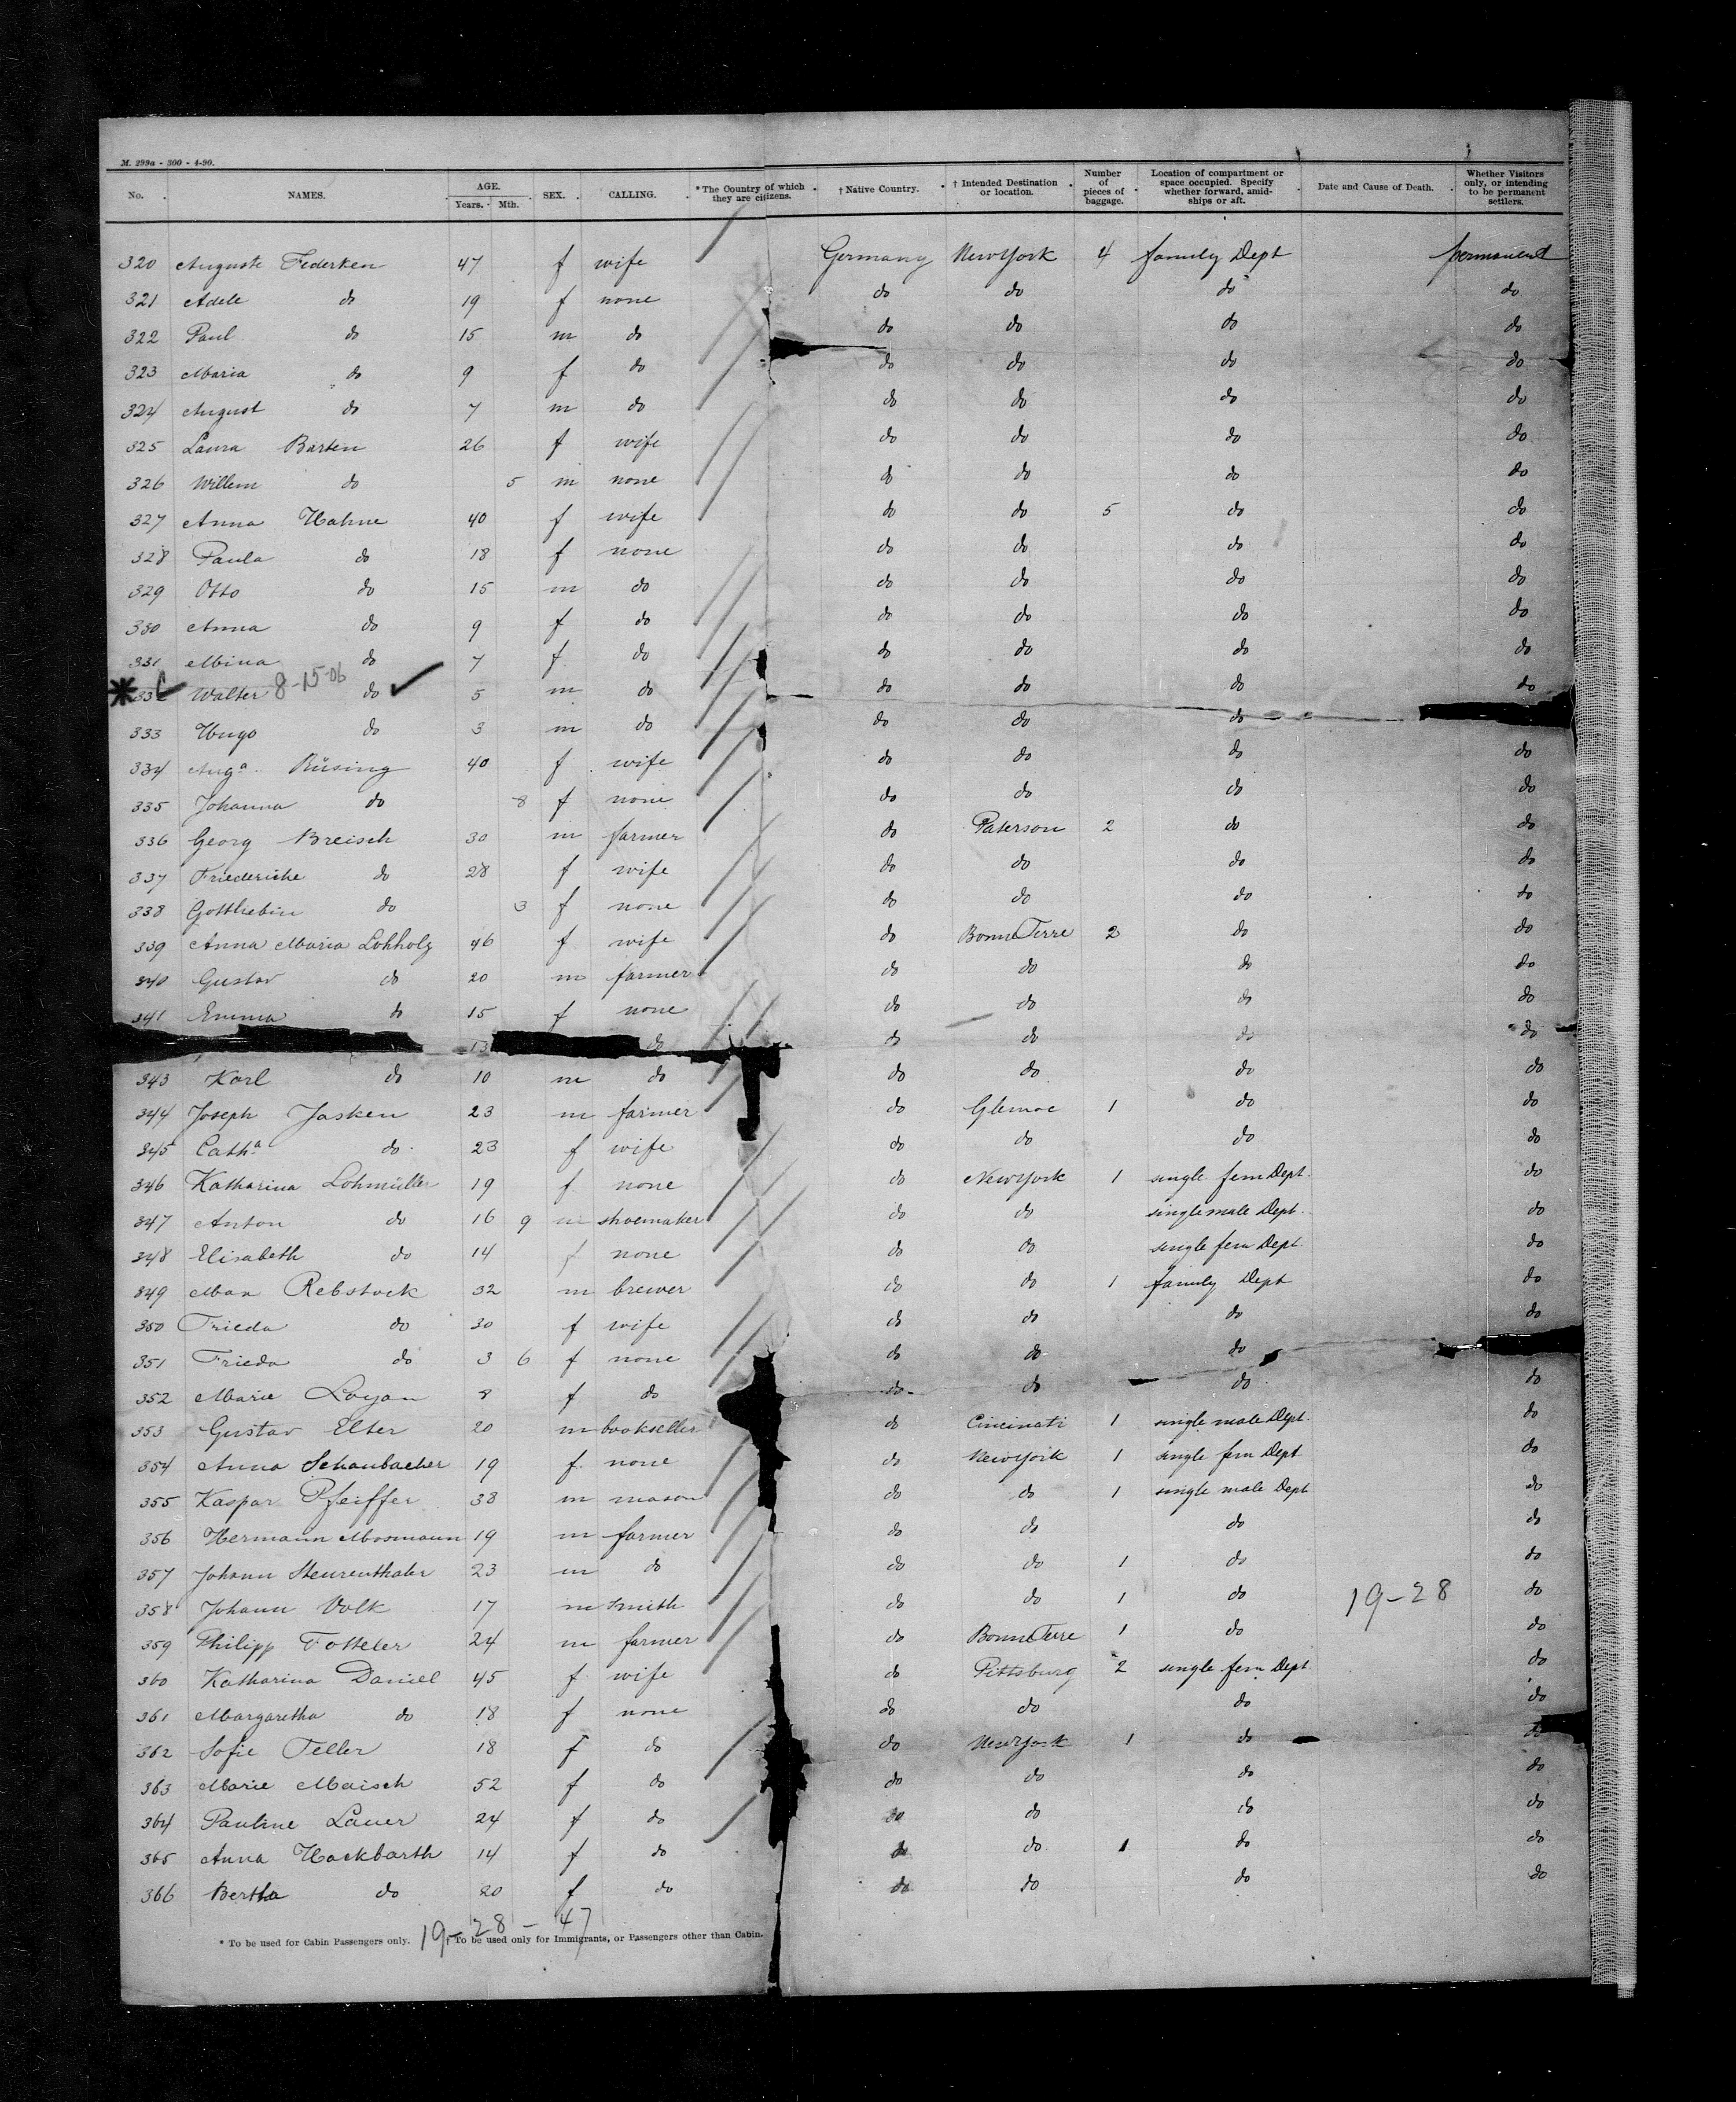 M. 299a - 300 - 4-90.
No. NAMES. AGE. Years. Mth. SEX. CALLING. * The Country of which they are citizens. † Native Country. † Intended Destination or location. Number of pieces of baggage. Location of compartment or space occupied. Specify whether forward, amidships or aft. Date and Cause of Death. Whether Visitors only, or intending to be permanent settlers.
320 Auguste Federken 47 f wife Germany New York 4 family Dept permanent
321 Adele do 19 f none do do do do
322 Paul do 15 m do do do do do
323 Maria do 9 f do do do do do
324 August do 7 m do do do do do
325 Laura Barten 26 f wife do do do do
326 Willem do 5 m none do do do do
327 Anna Hahne 40 f wife do do 5 do do
328 Paula do 18 f none do do do do
329 Otto do 15 m do do do do do
330 Anna do 9 f do do do do do
331 Mina do 7 f do do do do do
332 Walter 8-15-06 do 5 m do do do do do
333 Hugo do 3 m do do do do
334 Auga. Büsing 40 f wife do do do do
335 Johanna do 8 f none do do do do
336 Georg Breisch 30 m farmer do Paterson 2 do do
337 Friederike do 28 f wife do do do do
338 Gottliebin do 3 f none do do do do
339 Anna Maria Lohholz 46 f wife do Bonne Terre 2 do do
340 Gustav do 20 m farmer do do do do
341 Emma do 15 f none do do do do
13 do do do do do
343 Karl do 10 m do do do do do
344 Joseph Jasken 23 m farmer do 1 do do
345 Catha do 23 f wife do do do do
346 Katharina Lohmüller 19 f none do New York 1 single fem Dept. do
347 Anton do 16 9 m shoemaker do do single male Dept. do
348 Elisabeth do 14 f none do do single fem Dept. do
349 Max Rebstock 32 m brewer do do 1 family Dept do
350 Frieda do 30 f wife do do do do
351 Frieda do 3 6 f none do do do
352 Marie Loyan 8 f do do do do do
353 Gustav Elter 20 m bookseller do Cincinati 1 single male Dept. do
354 Anna Schaubacher 19 f. none do New York 1 single fem Dept do
355 Kaspar Pfeiffer 38 m mason do do 1 single male Dept do
356 Hermann Mosmann 19 m farmer do do do do
357 Johann Steurenthaler 23 m do do do 1 do do
358 Johann Volk 17 m smith do do 1 do 19-28 do
359 Philipp Fotteler 24 m farmer do Bonne Terre 1 do do
360 Katharina Daniel 45 f wife do Pittsburg 2 single fem Dept do
361 Margaretha do 18 f none do do do do
362 Sofie Teller 18 f do do New York 1 do do
363 Marie Maisch 52 f do do do do do
364 Pauline Lauer 24 f do do do do do
365 Anna Hackbarth 14 f do do do 1 do do
366 Bertha do 20 f do do do do do
19-28-47
* To be used for Cabin Passengers only. † To be used only for Immigrants, or Passengers other than Cabin.